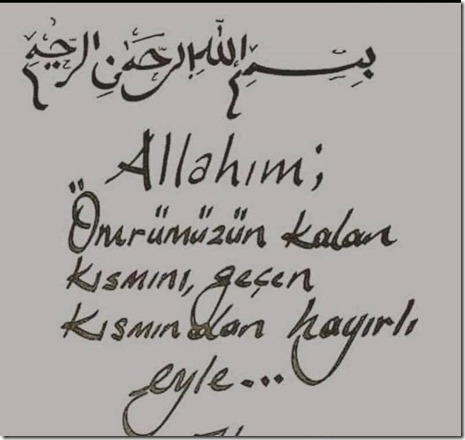 بِسْمِ اللّٰهِ الرَّحْمٰنِ الرَّحِيمِ
Allahım;
Ömrümüzün kalan
kısmını, geçen
kısmından hayırlı
eyle...